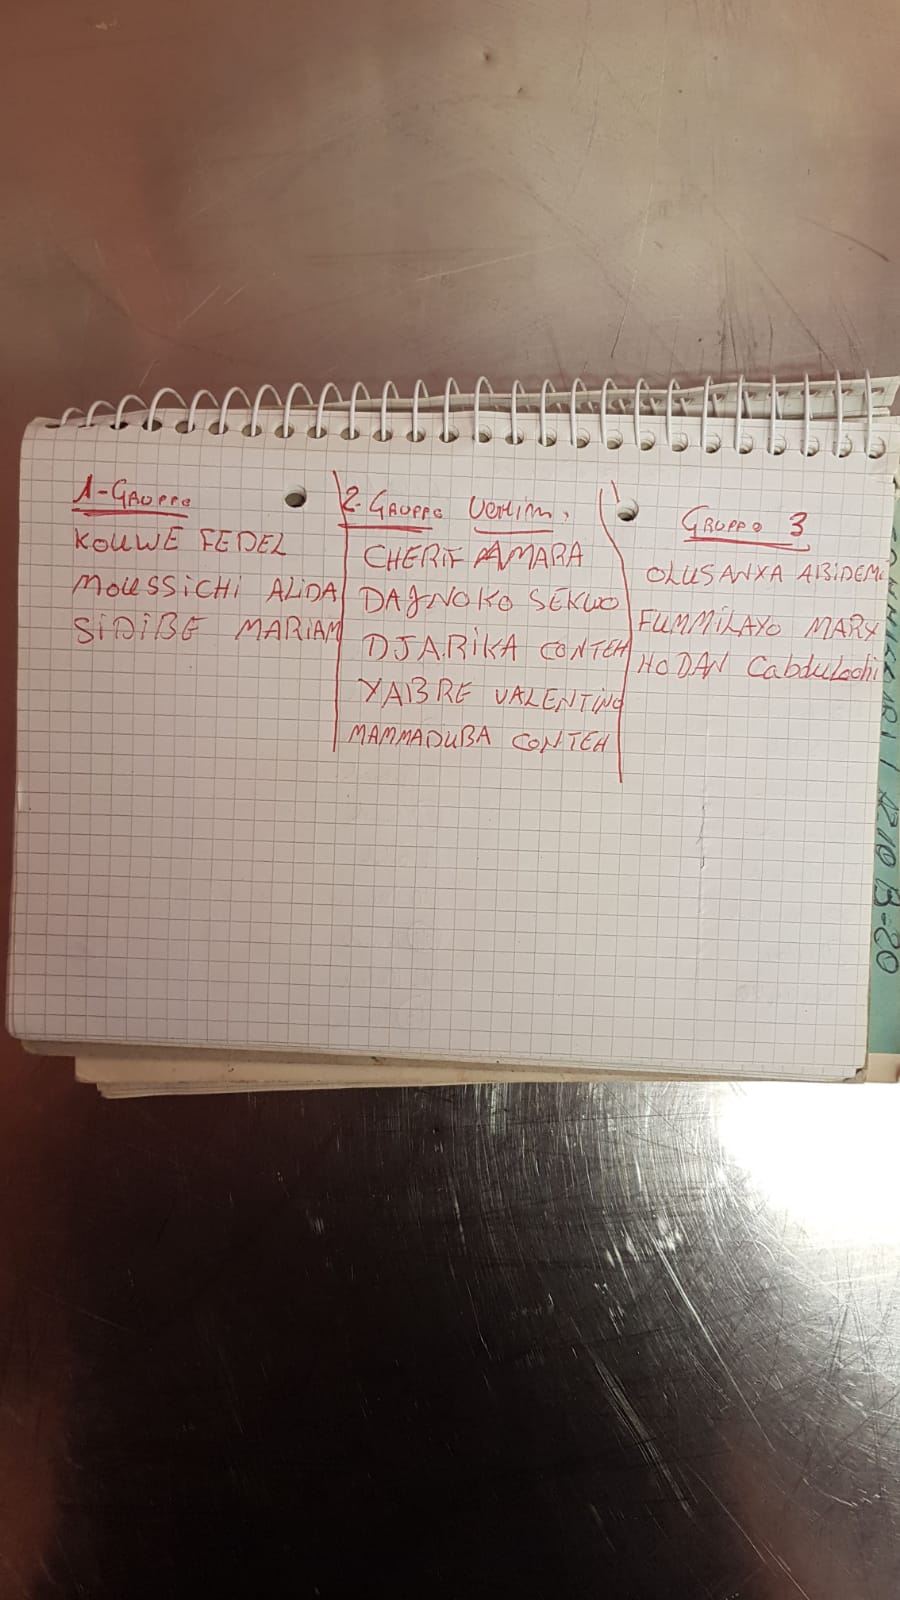 1-Gruppo
KOUWE FEDEL
MOUSSiCHi ALiDA
SiDiBE MARiAM
2-Gruppo Uomini
CHERIF AMARA
DAJNOKO SEKUO
DJARIKA CONTEH
YABRE VALENTINO
MAMMADUBA CONTEH
Gruppo 3
OLUSANYA ABiDEMi
FUMMiLAYO MARY
HODAN Cabdulaahi